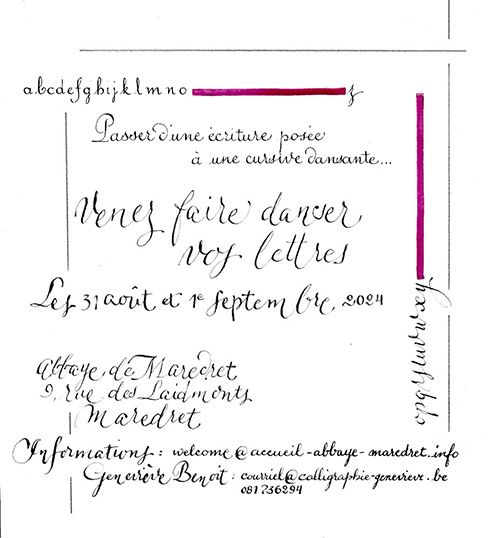 abcdefghijklmno z
Passer d'une écriture posée
à une cursive dansante...
Venez faire danser
vos lettres
Les 31 août et 1e septembre, 2024
Abbaye de Maredret
9, rue des Laidmonts
Maredret
Informations : welcome@accueil-abbaye-maredret.info
Geneviève Benoit : courriel@calligraphie-genevieve.be
081736294